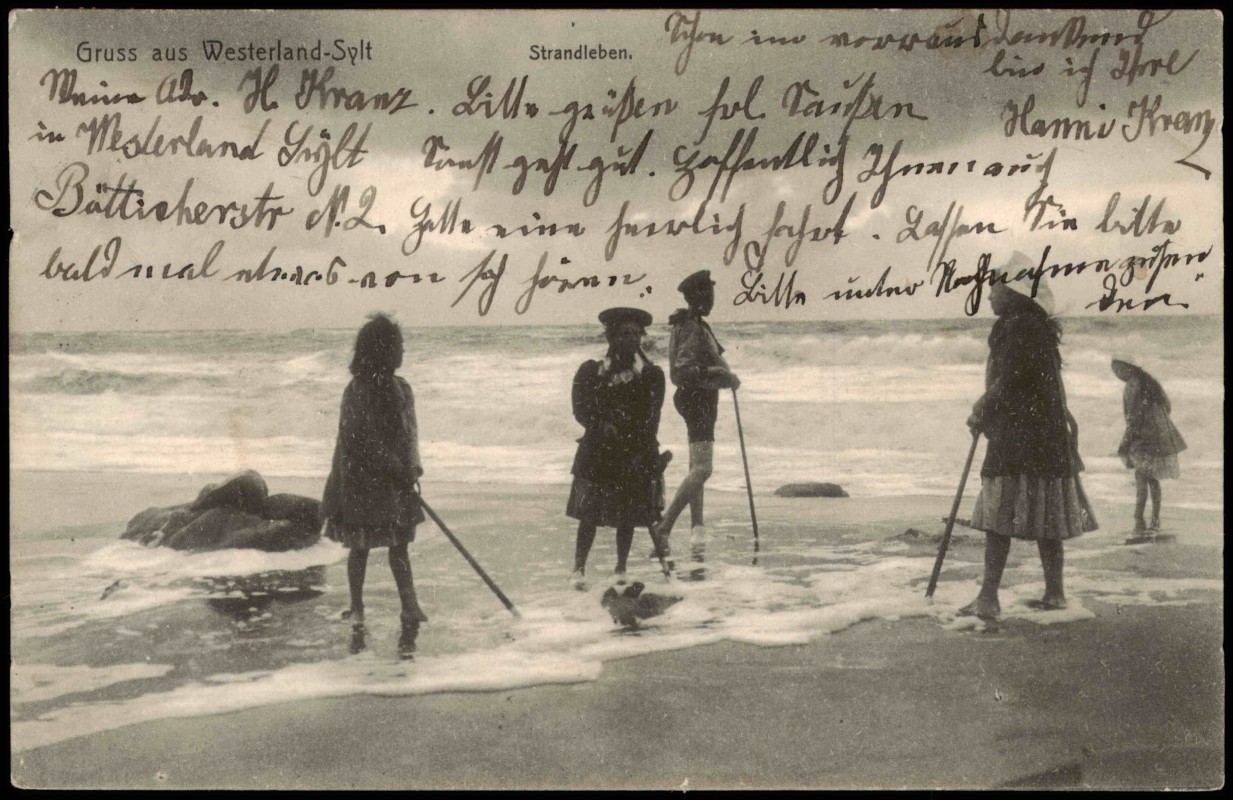 Gruss aus Westerland-Sylt
Strandleben.
Meine Adr. H. Kranz. Bitte grüßen frl.
in Westerland Sylt Sonst geht gut. Hoffentlich Ihnen auch
Bötticherstr N. 2. Hatte eine herrlich fahrt. Lassen Sie bitte
bald mal etwas von sich hören.
Bitte unter Nachnahme zusen
den.
Schon im vorraus dankend
bin ich Ihre
Hanni Kranz